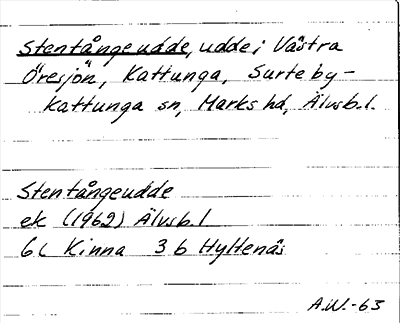 Stentångeudde, udde i Västra
Öresjön, Kattunga, Surteby-
Kattunga sn, Marks hd, Älvsb. l.
Stentångeudde
ek (1962) Älvsb. l
6c Kinna 3b Hyltenäs
A.W.-63